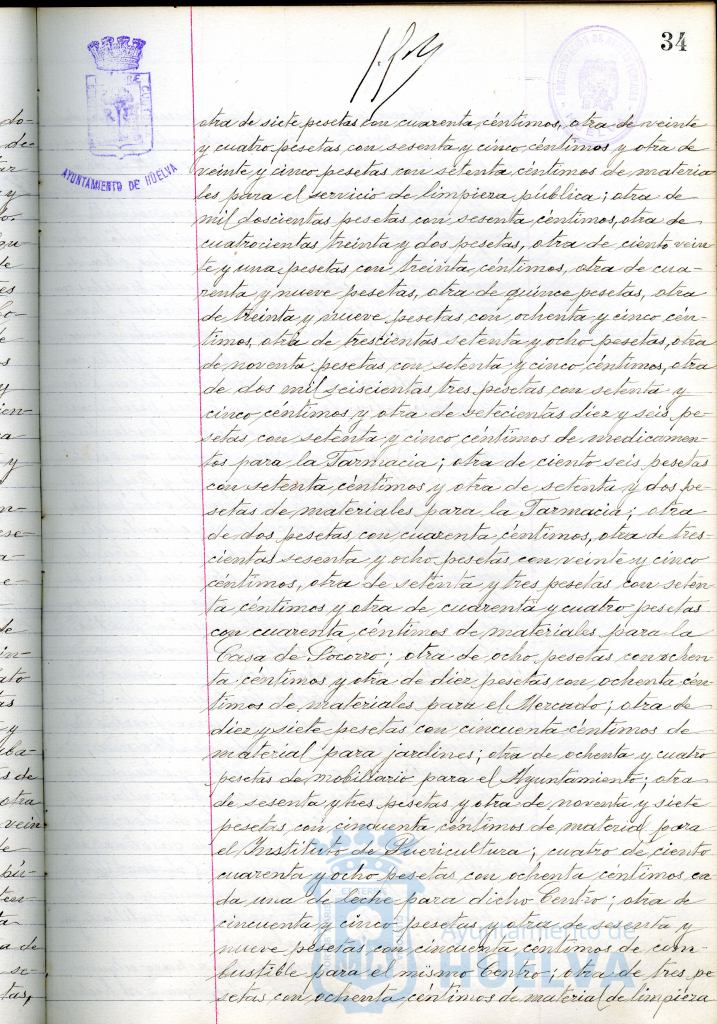 34
AYUNTAMIENTO DE HUELVA
otra de siete pesetas con cuarenta céntimos, otra de veinte
y cuatro pesetas con sesenta y cinco céntimos y otra de
veinte y cinco pesetas con setenta céntimos de materia
les para el servicio de limpieza pública; otra de
mil doscientas pesetas con sesenta céntimos, otra de
cuatrocientas treinta y dos pesetas, otra de ciento vein
te y una pesetas con treinta céntimos, otra de cua-
renta y nueve pesetas, otra de quince pesetas, otra
de treinta y nueve pesetas con ochenta y cinco cén-
timos, otra de trescientas setenta y ocho pesetas, otra
de noventa pesetas con setenta y cinco céntimos, otra
de dos mil seiscientas tres pesetas con setenta y
cinco céntimos y otra de setecientas diez y seis pe-
setas con setenta y cinco céntimos de medicamen-
tos para la Farmacia; otra de ciento seis pesetas
con setenta céntimos y otra de setenta y dos pe-
setas de materiales para la Farmacia; otra
de dos pesetas con cuarenta céntimos, otra de tres-
cientas sesenta y ocho pesetas con veinte y cinco
céntimos, otra de setenta y tres pesetas con seten-
ta céntimos y otra de cuarenta y cuatro pesetas
con cuarenta céntimos de materiales para la
Casa de Socorro; otra de ocho pesetas con ochen
ta céntimos y otra de diez pesetas con ochenta cén-
timos de materiales para el Mercado; otra de
diez y siete pesetas con cincuenta céntimos de
material para jardines; otra de ochenta y cuatro
pesetas de mobiliario para el Ayuntamiento; otra
de sesenta y tres pesetas y otra de noventa y siete
pesetas con cincuenta céntimos de material para
el Instituto de Puericultura; cuatro de ciento
cuarenta y ocho pesetas con ochenta céntimos ca-
da una de leche para dicho Centro; otra de
cincuenta y cinco pesetas y otra de sesenta y
nueve pesetas con cincuenta céntimos de com-
bustible para el mismo Centro; otra de tres pe
setas con ochenta céntimos de material de limpieza
Ayuntamiento de
HUELVA